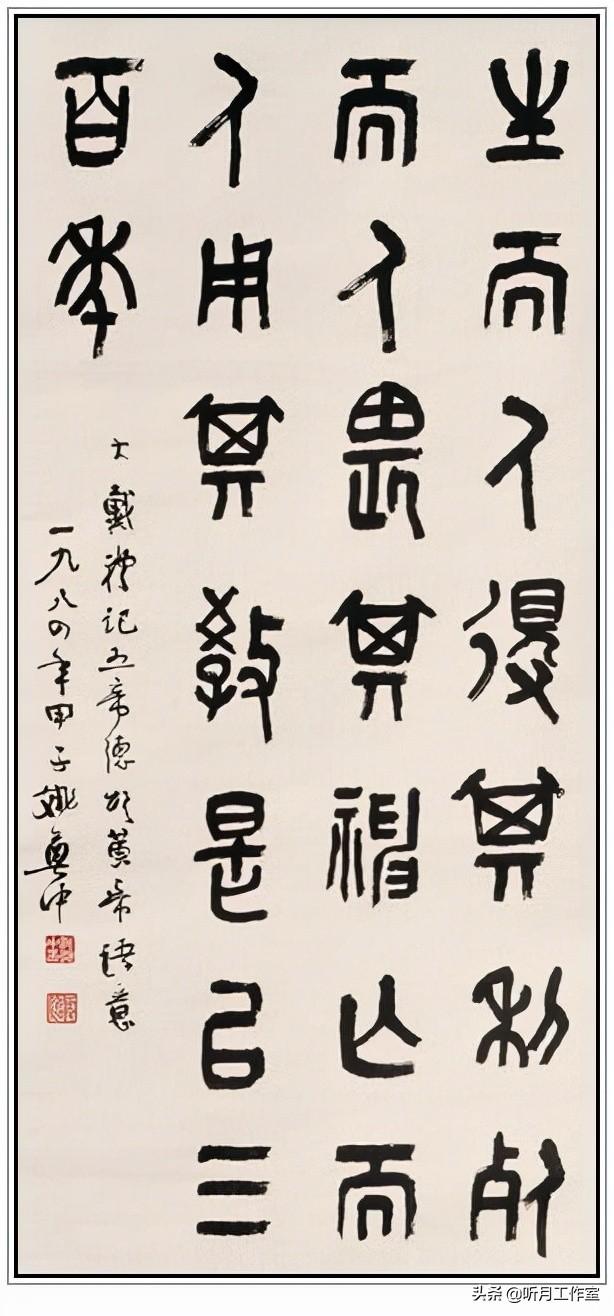 生而人得其利死
而人畏其神亡而
人用其教是以三
百年
大戴礼记五帝德颂黄帝语意
一九八四年甲子姚奠中
头条 @听月工作室